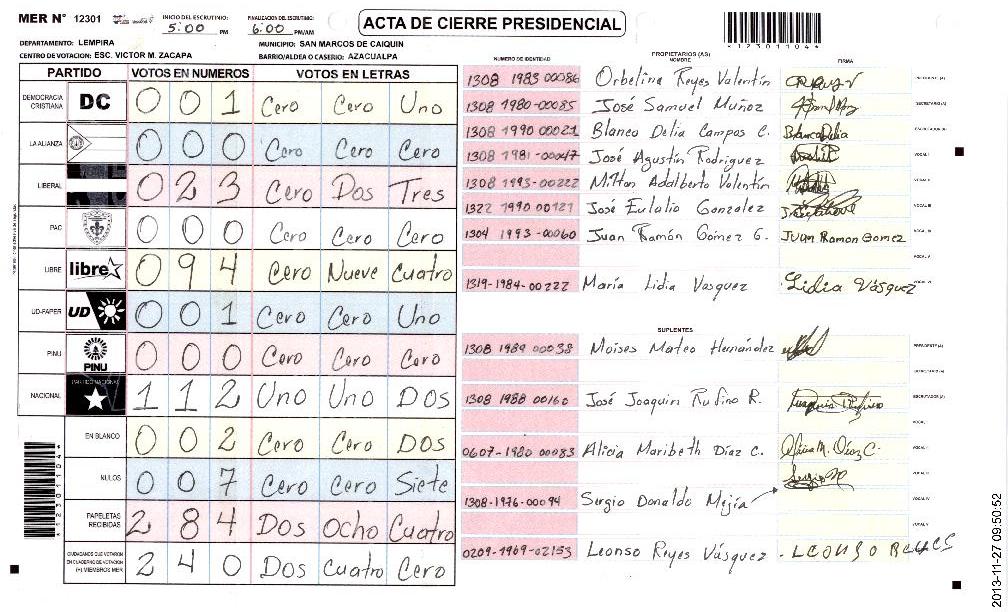 MER N° 12301
INICIO DEL ESCRUTINIO: 5:00 PM
FINALIZACION DEL ESCRUTINIO: 6:00 PM/AM
ACTA DE CIERRE PRESIDENCIAL
*12301104*
DEPARTAMENTO: LEMPIRA
MUNICIPIO: SAN MARCOS DE CAIQUIN
CENTRO DE VOTACION: ESC. VICTOR M. ZACAPA
BARRIO/ALDEA O CASERIO: AZACUALPA
PARTIDO VOTOS EN NUMEROS VOTOS EN LETRAS
DEMOCRACIA CRISTIANA DC 0 0 1 Cero Cero Uno
LA ALIANZA 0 0 0 Cero Cero Cero
LIBERAL 0 2 3 Cero Dos Tres
PAC 0 0 0 Cero Cero Cero
LIBRE libre 0 9 4 Cero Nueve Cuatro
UD-FAPER UD 0 0 1 Cero Cero Uno
PINU PINU 0 0 0 Cero Cero Cero
NACIONAL PARTIDO NACIONAL 1 1 2 Uno Uno Dos
EN BLANCO 0 0 2 Cero Cero Dos
NULOS 0 0 7 Cero Cero Siete
PAPELETAS RECIBIDAS 2 8 4 Dos Ocho Cuatro
CIUDADANOS QUE VOTARON EN CUADERNO DE VOTACION (+) MIEMBROS MER 2 4 0 Dos Cuatro Cero
*12301104*
PROPIETARIOS (AS)
NUMERO DE IDENTIDAD NOMBRE FIRMA
1308 1983 00086 Orbelina Reyes Valentín PRESIDENTE (A)
1308 1980-00085 José Samuel Muñoz SECRETARIO (A)
1308 1990 00021 Blanca Delia Campos C. Blanca Delia ESCRUTADOR (A)
1308 1981-00047 José Agustín Rodriguez VOCAL I
1308 1993-00222 Milton Adalberto Valentín VOCAL II
1322 1990 00121 José Eulalio Gonzalez VOCAL III
1304 1993-00060 Juan Ramón Gómez G. Juan Ramon Gomez VOCAL IV
VOCAL V
1319-1984-00222 María Lidia Vasquez Lidia Vásquez VOCAL VI
SUPLENTES
1308 1989 00038 Moises Mateo Hernández PRESIDENTE (A)
SECRETARIO (A)
1308 1988 00160 José Joaquin Rufino R. ESCRUTADOR (A)
VOCAL I
0607-1980 00083 Alicia Maribeth Díaz C. Alicia M. Díaz C. VOCAL II
VOCAL III
1308-1976-00094 Sergio Donaldo Mejía Sergio M VOCAL IV
VOCAL V
0209-1969-02153 Leonso Reyes Vásquez LEONSO REYES VOCAL VI
2013-11-27 09:50:52